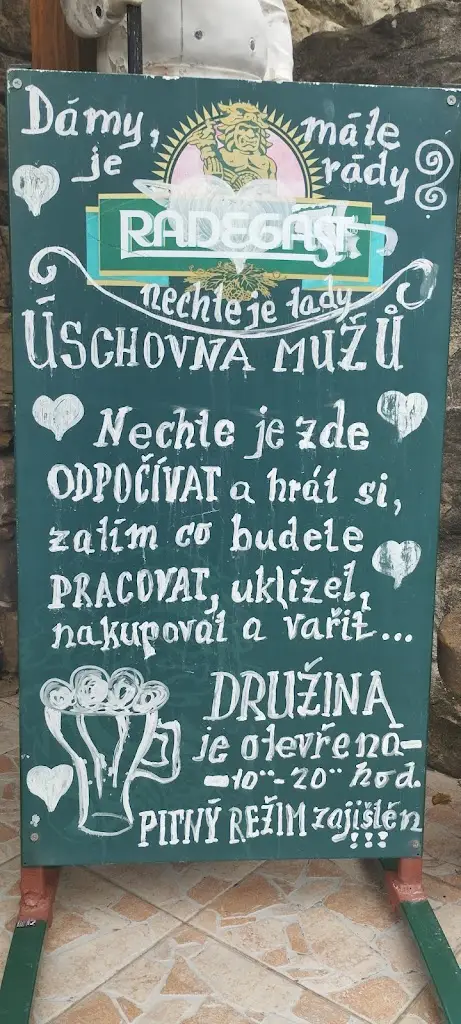 Dámy, máte
je rády
RADEGAST
nechte je tady
ÚSCHOVNA MUŽŮ
Nechte je zde
ODPOČÍVAT a hrát si,
zatím co budete
PRACOVAT, uklízet,
nakupovat a vařit...
DRUŽINA
je otevřena-
-10⁰⁰-20⁰⁰ hod.
PITNÝ REŽIM zajištěn
!!!